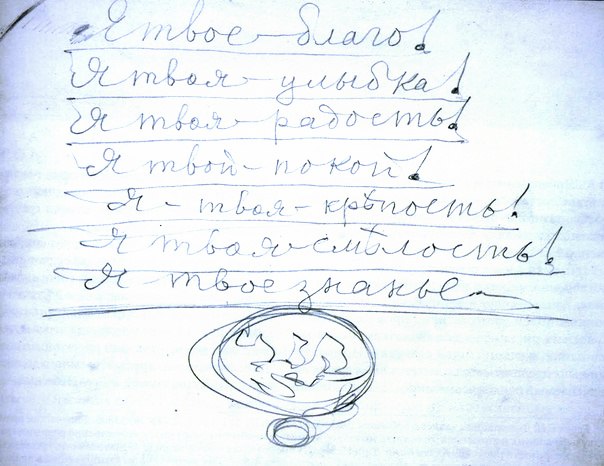 Я твое – благо!
Я твоя – улыбка!
Я твоя – радость!
Я твой – покой!
Я – твоя – крѣпость!
Я твоя – смѣлость!
Я – твое знанье –